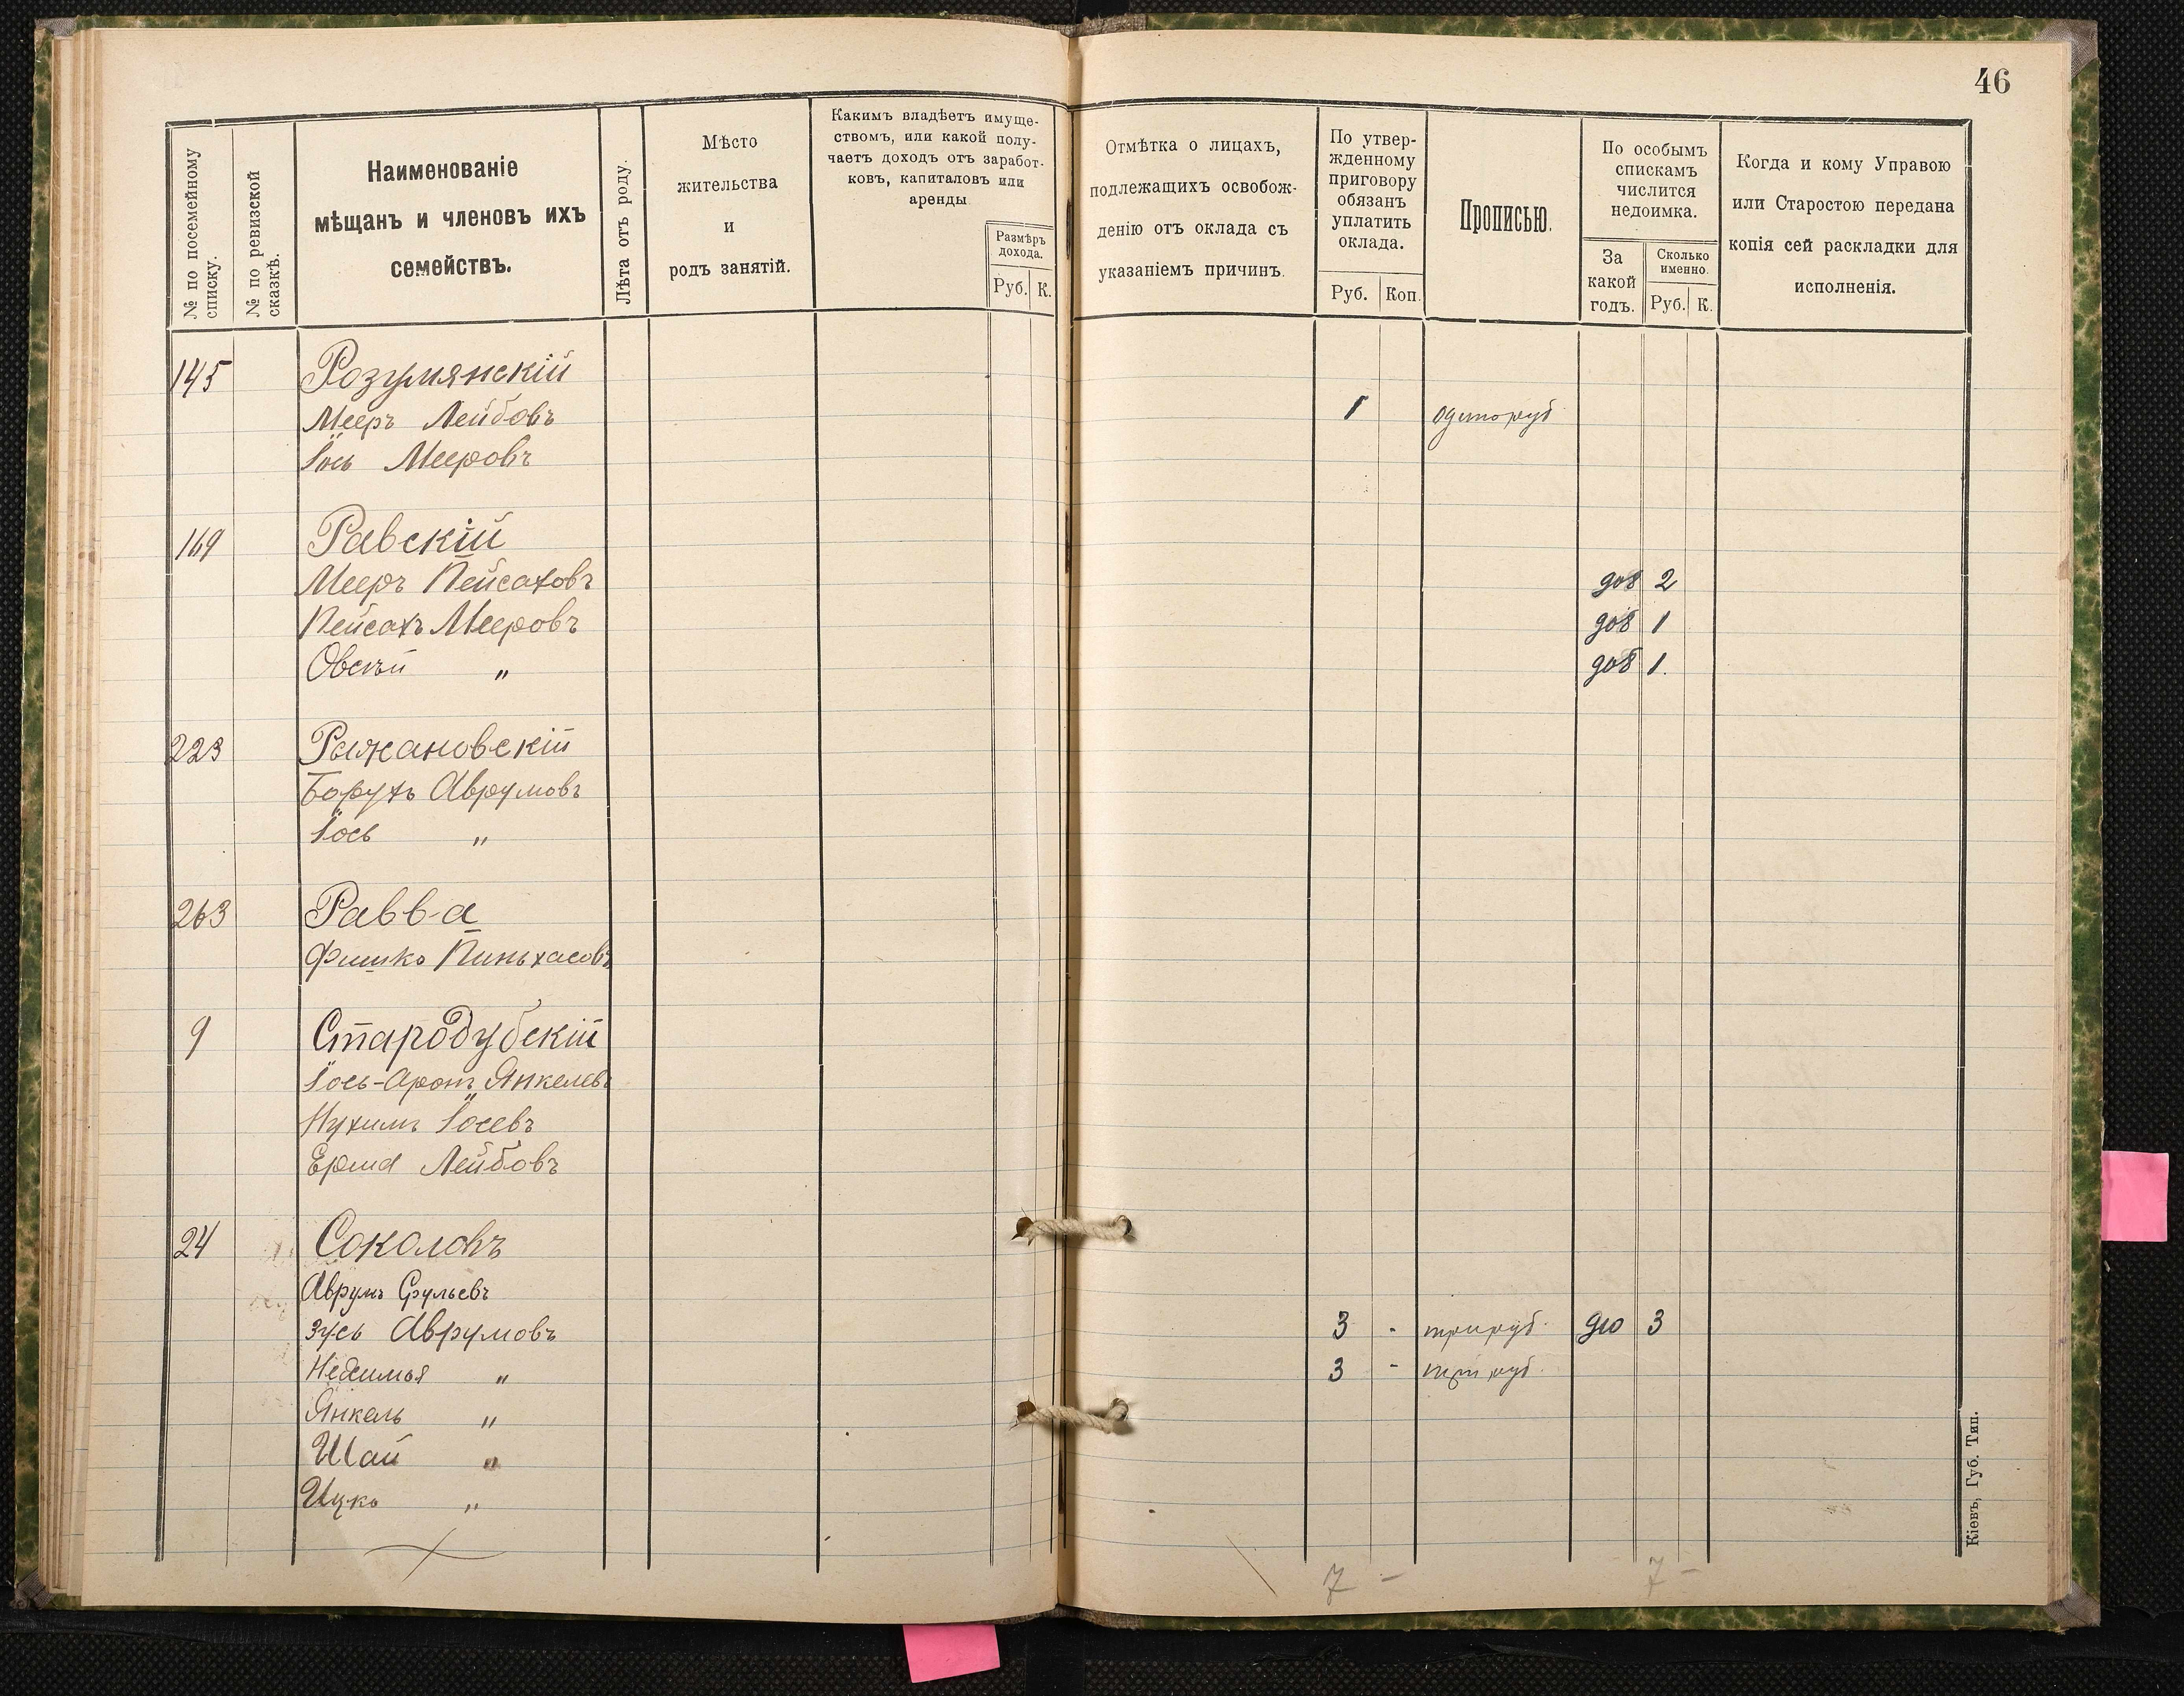 46
№ по посемейному списку.
№ по ревизской сказкѣ.
Наименованіе
мѣщанъ и членовъ ихъ
семействъ.
Лѣта отъ роду.
Мѣсто
жительства
и
родъ занятій.
Какимъ владѣетъ имуще-
ствомъ, или какой полу-
чаетъ доходъ отъ заработ-
ковъ, капиталовъ или
аренды
Размѣръ
дохода.
Руб. К.
Отмѣтка о лицахъ,
подлежащихъ освобож-
денію отъ оклада съ
указаніемъ причинъ.
По утвер-
жденному
приговору
обязанъ
уплатить
оклада.
Руб. Коп.
Прописью.
По особымъ
спискамъ
числится
недоимка.
За
какой
годъ.
Сколько
именно.
Руб. К.
Когда и кому Управою
или Старостою передана
копія сей раскладки для
исполненія.
145 Розумянскій
Мееръ Лейбовъ 1 один руб
Іось Мееровъ
169 Равскій
Мееръ Пейсаховъ 908 2
Пейсахъ Мееровъ 908 1
Овсѣй " 908 1.
223 Рыжановскій
Борухъ Аврумовъ
Іось "
263 Равва
Фишко Пиньхасовъ
9 Стародубскій
Іось-Аронъ Янкелевъ
Нухимъ Іосевъ
Ершл Лейбовъ
24 Соколовъ
Аврумъ Срульевъ
Зусь Аврумовъ 3 - три руб. 910 3
Нехемья " 3 - три руб.
Янкель "
Шай "
Ицко "
7 - 7 -
Кіевъ, Губ. Тип.